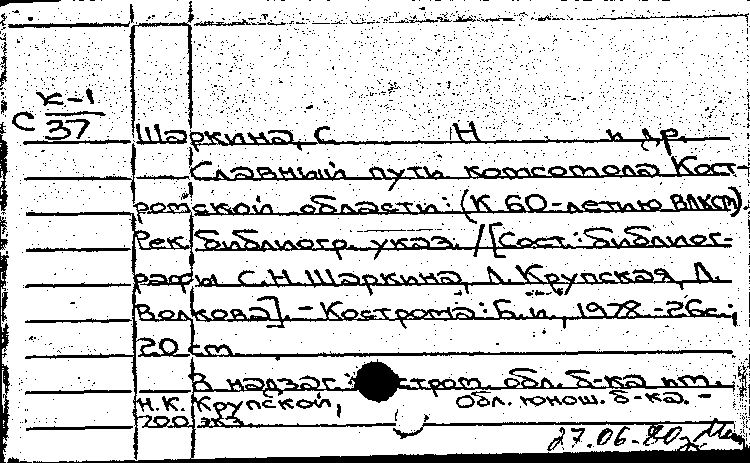 К-1
С 37
Шаркина, С. Н. и др.
Славный путь комсомола Кост-
ромской области: (К 60-летию ВЛКСМ).
Рек. библиогр. указ. /[Сост.: библиог-
рафы С.Н. Шаркина, Л. Крупская, Л.
Волкова]. - Кострома: Б.и., 1978 - 26с.;
20 cm
В надзаг.: Костром. обл. б-ка им.
Н.К. Крупской, Обл. юнош. б-ка. -
700 экз.
27.06.80г